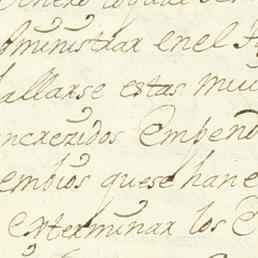 dministrar en el
allarse estas muc
ncrezidos Empeño
embios que se han e
exterminar los E